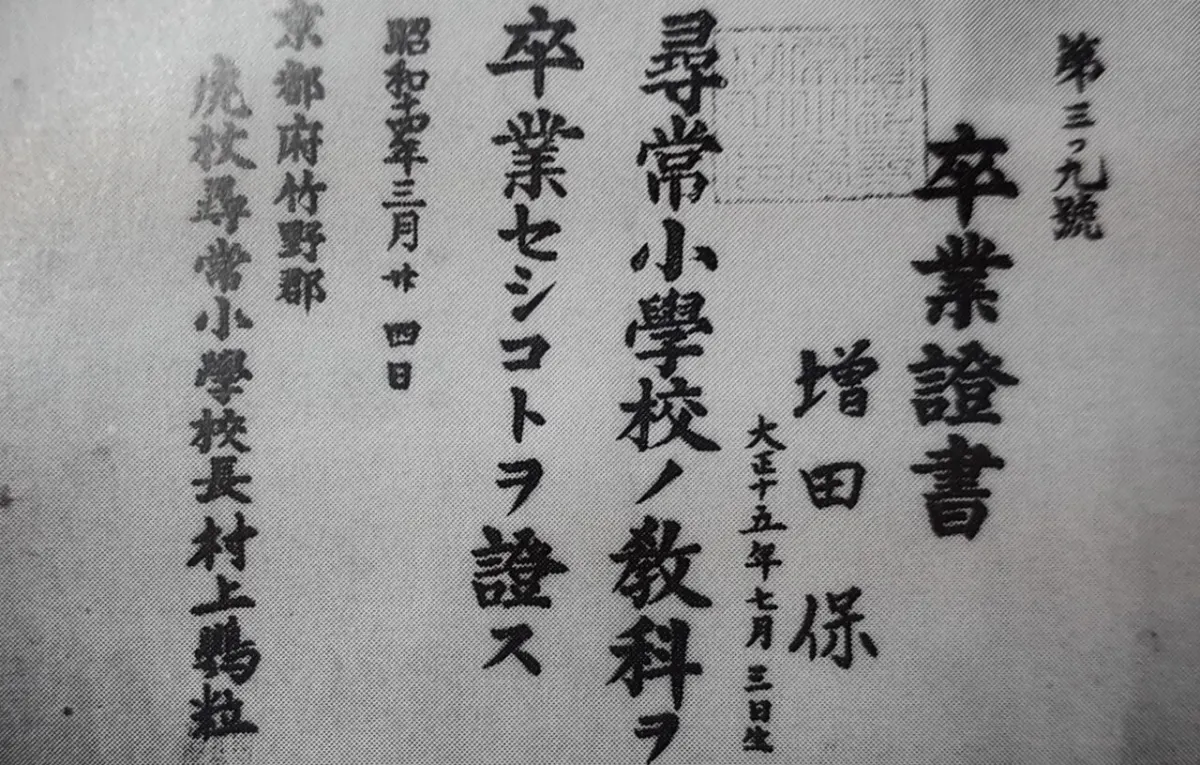 第三〇九號
卒業證書
増田保
大正十五年七月三日生
尋常小學校ノ教科ヲ
卒業セシコトヲ證ス
昭和十四年三月廿四日
京都府竹野郡
虎杖尋常小學校長村上粒